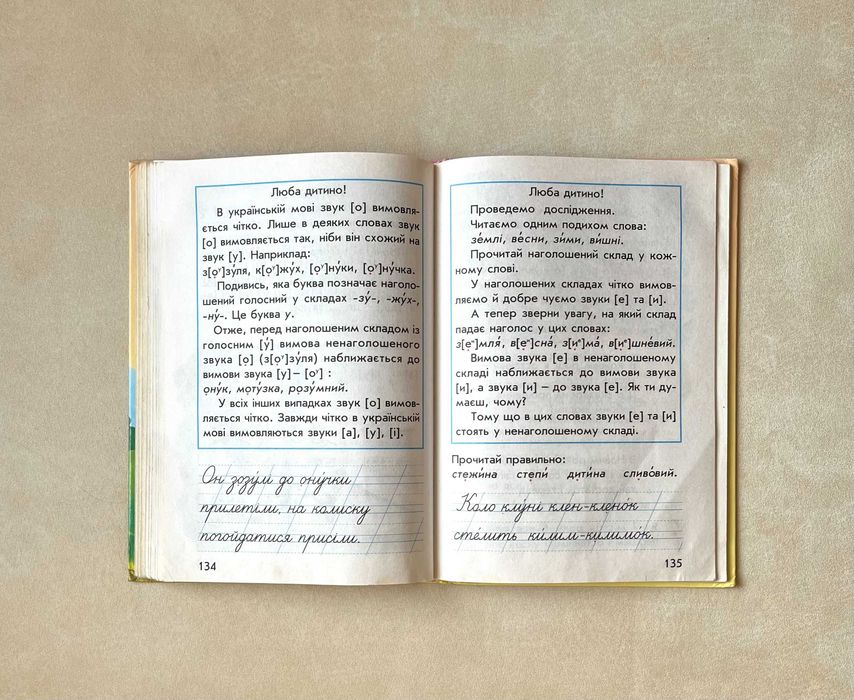 Люба дитино!
В українській мові звук [о] вимовля-
ється чітко. Лише в деяких словах звук
[о] вимовляється так, ніби він схожий на
звук [у]. Наприклад:
з[о̣ʸ]зу́ля, к[о̣ʸ]жу́х, [о̣ʸ]ну́ки, [о̣ʸ]ну́чка.
Подивись, яка буква позначає наголо-
шений голосний у складах -зу́-, -жу́х-,
-ну́-. Це буква у.
Отже, перед наголошеним складом із
голосним [у́] вимова ненаголошеного
звука [о̣] (з[о̣ʸ]зу́ля) наближається до
вимови звука [у] – [оʸ] :
о̣ну́к, мо̣ту́зка, ро̣зу́мний.
У всіх інших випадках звук [о] вимов-
ляється чітко. Завжди чітко в українській
мові вимовляються звуки [а], [у], [і].
Он зозу́лі до ону́чки
прилетіли, на колиску
погойдатися присіли.
134
Люба дитино!
Проведемо дослідження.
Читаємо одним подихом слова:
зе́млі, ве́сни, зи́ми, ви́шні.
Прочитай наголошений склад у кож-
ному слові.
У наголошених складах чітко вимов-
ляємо й добре чуємо звуки [е] та [и].
А тепер зверни увагу, на який склад
падає наголос у цих словах:
з[е̣ᶦ]мля́, в[е̣ᶦ]сна́, з[и̣ᵉ]ма́, в[и̣ᵉ]шне́вий.
Вимова звука [е] в ненаголошеному
складі наближається до вимови звука
[и], а звука [и] – до звука [е]. Як ти ду-
маєш, чому?
Тому що в цих словах звуки [е] та [и]
стоять у ненаголошеному складі.
Прочитай правильно:
сте̣жи́на сте̣пи́ ди̣ти́на сли̣во́вий.
Коло клу́ні клен-клено́к
сте́лить ки́лим-килимо́к.
135